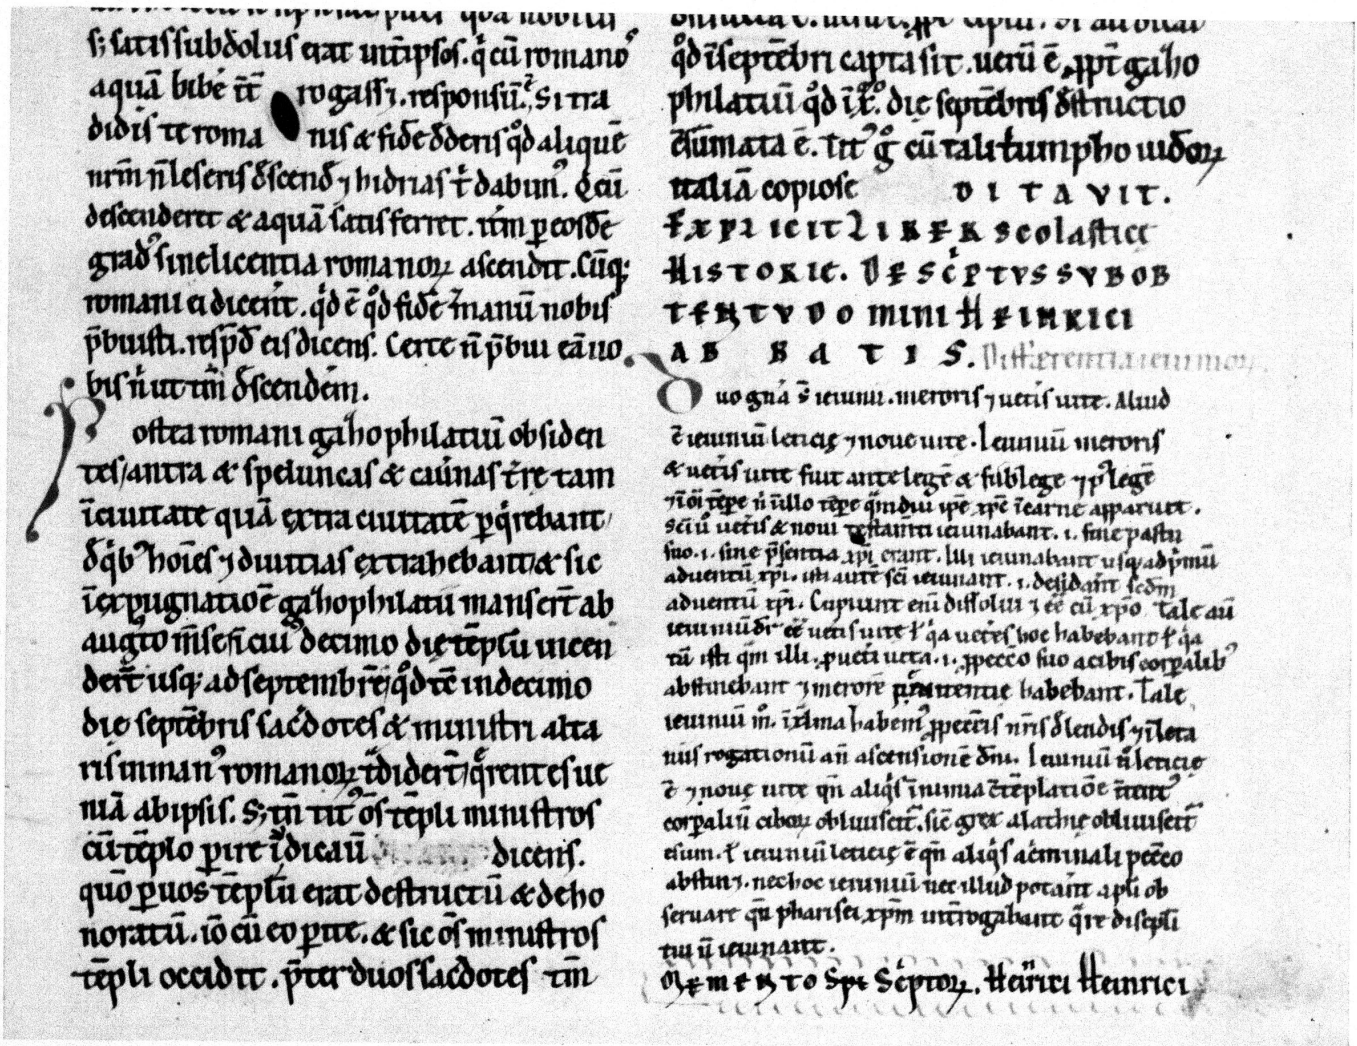 s; satis subdolus erat int̄ ipsos. q̇ cū romanoꝰ
aquā bibe᷑ ... rogass&. responsū. Si tra
didis te roma nis & fidē dederis qͦd aliquē
nr̄m n̄ leseris descend ⁊ hidrias t̄ dabimꝰ. Q cū
descenderet & aquā satis ferret. itm̄ ꝑ eosdē
gradꝰ sine licentia romanoꝝ ascendit. Cūq;
romani ei dicer̄t. qͥd ē qͦd fidē ⁊ manū nobis
p̄buisti. respōd eis dicens. Certe n̄ p̄bui eā uo
bis n̄ ut tm̄ descenderem.
Postea romani gazhophilatiū obsiden
tes / antra & speluncas & cauernas tr̄re tam
ī ciuitate quā extra ciuitatē ꝑq̇rebant /
de qͥbꝰ hoīes ⁊ diuitias extrahebant / & sic
ī expugnatiōe gazhophilatii manser̄t ab
augꝰto mse ... decimo die tēplū incen
der̄t usq; ad septembrē / qͦd tc̄ in decimo
die septēbris sacdotes & ministri alta
ris in manꝰ romanoꝝ tͣdider̄t / q̄rentes ue
niā ab ipsis. S; tn̄ titꝰ ōs tēpli ministros
cū tēplo ꝑire iͧdicauͥ dicens.
quō ꝑ uos tēplū erat destructū & deho
noratū. iō cū eo ꝑite. & sic ōs ministros
tēpli occidit. p̄ter duos sacdotes tm̄
qͦd ī septēbri capta sit. uerū ē ꝓpt̄ gazho
philatiū qͦd ī ... die septēbris destructio
cōsūmata ē. Titꝰ gͦ cū tali tͥumpho iudeoꝝ
italiā copiose DITAVIT.
EXPLICIT LIBER Scolasticę
HISTORIE. DESCͥPTVS SVB OB
TENTV DOMINI HEINRICI
ABBATIS. Differentia ieiunioꝝ
Duo gn̄a s̄ ieiunii. meroris ⁊ uet̄is uite. Aliud
ē ieiuniū leticię ⁊ noue uite. Ieiuniū meroris
& uet̄is uite fuit ante legē & sub lege ⁊ pꝰ legē
⁊ ī oī tēpe n̄ illo tēpe q̄mdiu ipē xp̄c ī carne apparuit.
Sc̄i ū uet̄is & noui testam̄ti ieiunabant. i. sine pastu
suo. i. sine p̄sentia xp̄i erant. Illi ieiunabant usq; ad pͥmū
aduentū xp̄i. isti autē sc̄i ieiunant. i. desid̄ant sedm̄
aduentū xp̄i. Cupiunt enī dissolui ⁊ eē cū xp̄o. Tale aū
ieiuniū dr̄ eē uet̄is uite ł qͥa uet̄es hoc habebant ł qͥa
tū isti qm̄ illi, ꝓ uet̄i uita. i. ꝓ peccō suo a cibis corꝑalibꝰ
abstinebant ⁊ merorē penitentie habebant. Tale
ieiuniū mͦ. ī xlma habemꝰ ꝓ pecc̄is nr̄is delendis ⁊ ī leta
niis rogationū an̄ ascensionē dn̄i. Ieiuniū ū leticię
ē ⁊ nouę uite qn̄ aliqͥs ī nimia ꝯtēplatiōe ...
corꝑaliū ciboꝝ obliuiscit᷑. sic̄ grex a lachie obliuiscit᷑
esum. ł ieiuniū leticię ē qn̄ aliqͥs a cͥminali peccō
abstin&. nec hoc ieiuniū nec illud potant apli ob
seruare qn̄ pharisei xp̄m int̄rogabant q̄re discipli
tui n̄ ieiunant.
MEMENTO Spc Scͥptoꝝ. Heinrici Heinrici